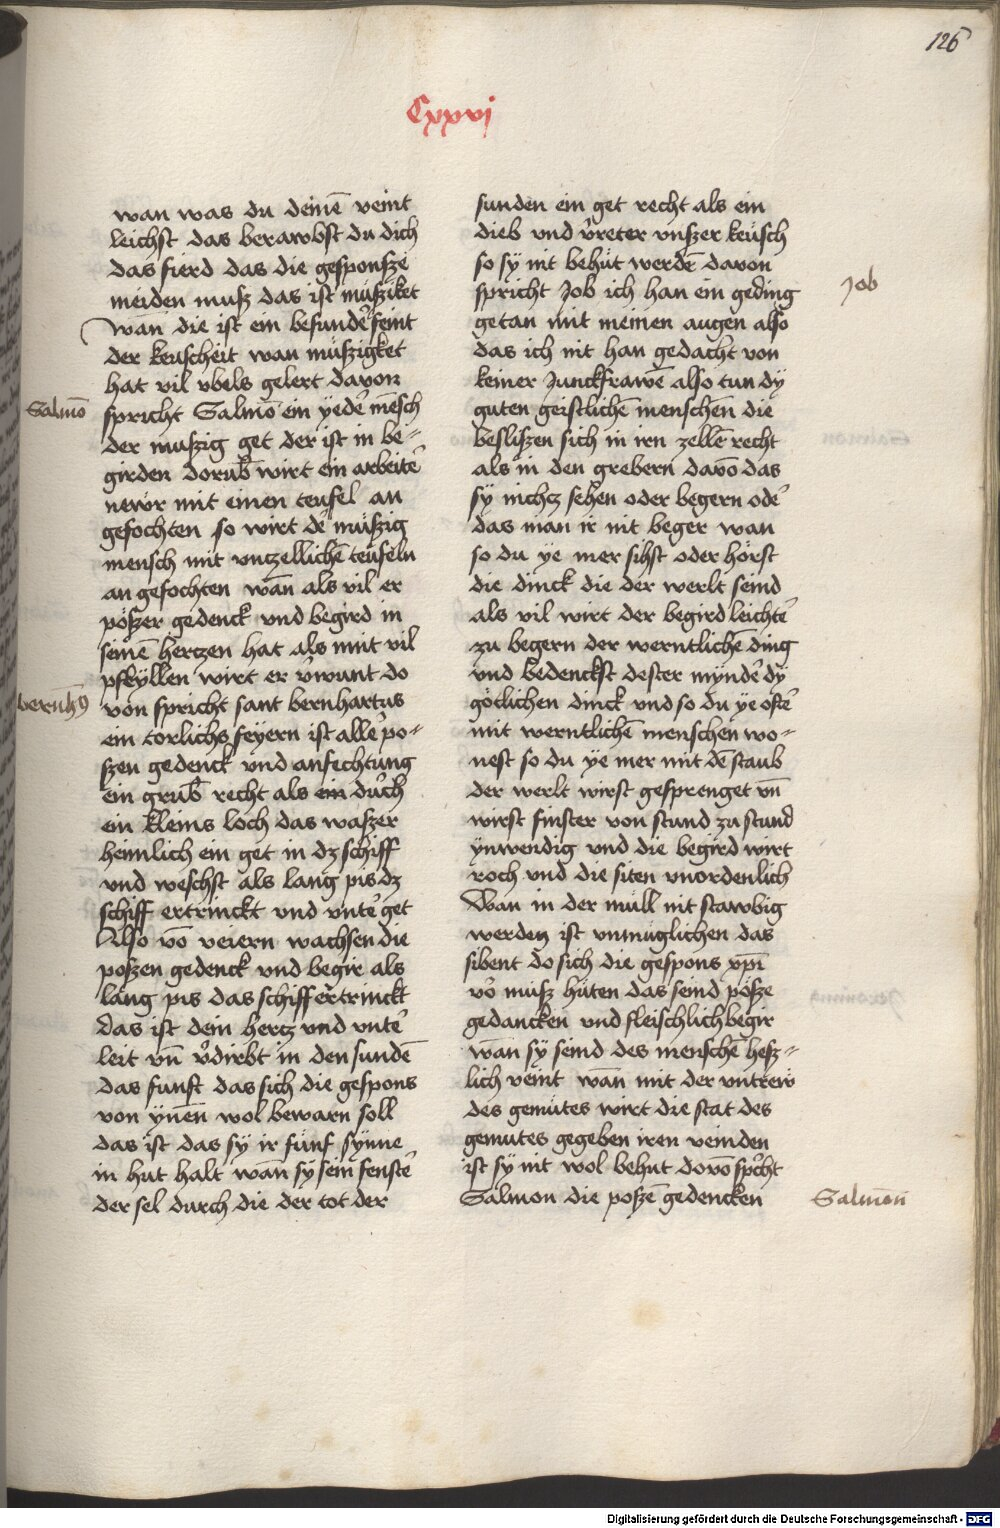 126
Cxxvi
wan was du deinē veint
leichst das berawbst du dich
das fierd das die gesponsze
meiden musz das ist müsziket
Wan die ist ein besundeꝰ feint
der keuscheit wan müszigket
hat vil vbels gelert davon
Salmō
spricht Salmō ein yedeꝰ mēsch
der muszig get der ist in be⸗
girden dorūb wirt ein arbeiteꝰ
newr mit einen teufel an
gefochten so wirt deꝰ müszig
mensch mit vnczellichē teufeln
an gefochten wān als vil er
pöszer gedenck vnd begird in
seinē hertzen hat als mit vil
pfeyllen wirt er v̉wunt do
bernh̄9
von spricht sant bernhartus
ein torlichs feyern ist alleꝰ po⸗
szen gedenck vnd anfechtung
ein grub recht als ein durch
ein kleins loch das waszer
heimlich ein get in dz schiff
vnd weschst als lang pis dz
schiff ertrinckt vnd vnteꝰ get
Also vō veiern wachsen die
poszen gedenck vnd begir als
lang pis das schiff ertrinckt
das ist dein hertz vnd vnteꝰ
leit vn̄ v̉dirbt in den sundē
das funft das sich die gespons
von ynēn wol bewarn soll
das ist das sy ir fünf synne
in hut halt wan sy sein fensteꝰ
der sel durch die der tot der
sunden ein get recht als ein
dieb vnd v̉reter vnszer keüsch
so sy nit behüt werdē davon
Job
spricht Job ich han ein geding
getan mit meinen augen also
das ich nit han gedacht von
keiner Junckfrawē also tun dÿ
guten geistlichē menschen die
besliszen sich in irn zellē recht
als in den grebern davō das
sÿ nichcz sehen oder begern odeꝰ
das man ir nit beger wan
so du ye mer sihst oder hörst
die dinck die der werlt seind
als vil wirt der begird leichteꝰ
zu begern der werntlichē ding
vnd bedenckst dester myndeꝰ dÿ
götlichen dinck vnd so du ye ofteꝰ
mit werntlichē menschen wo⸗
nest so du ye mer mit dē staub
der werlt wirst gesprenget vn̄
wirst finster von stund zu stund
ynwendig vnd die begird wirt
roch vnd die siten vnordenlich
Wan in der müll nit stawbig
werden ist vnmüglichen das
sibent do sich die gespons xp̄i
vor musz hüten das seind pösze
gedancken vnd fleischlich begir
wan sÿ seind des menschē hesz⸗
lich veint wan mit der vntrew
des gemütes wirt die stat des
gemutes gegeben iren veinden
ist sy nit wol behut dovō sp̉cht
Salmon die poszē gedencken
Salmōn
Digitalisierung gefördert durch die Deutsche Forschungsgemeinschaft - DFG